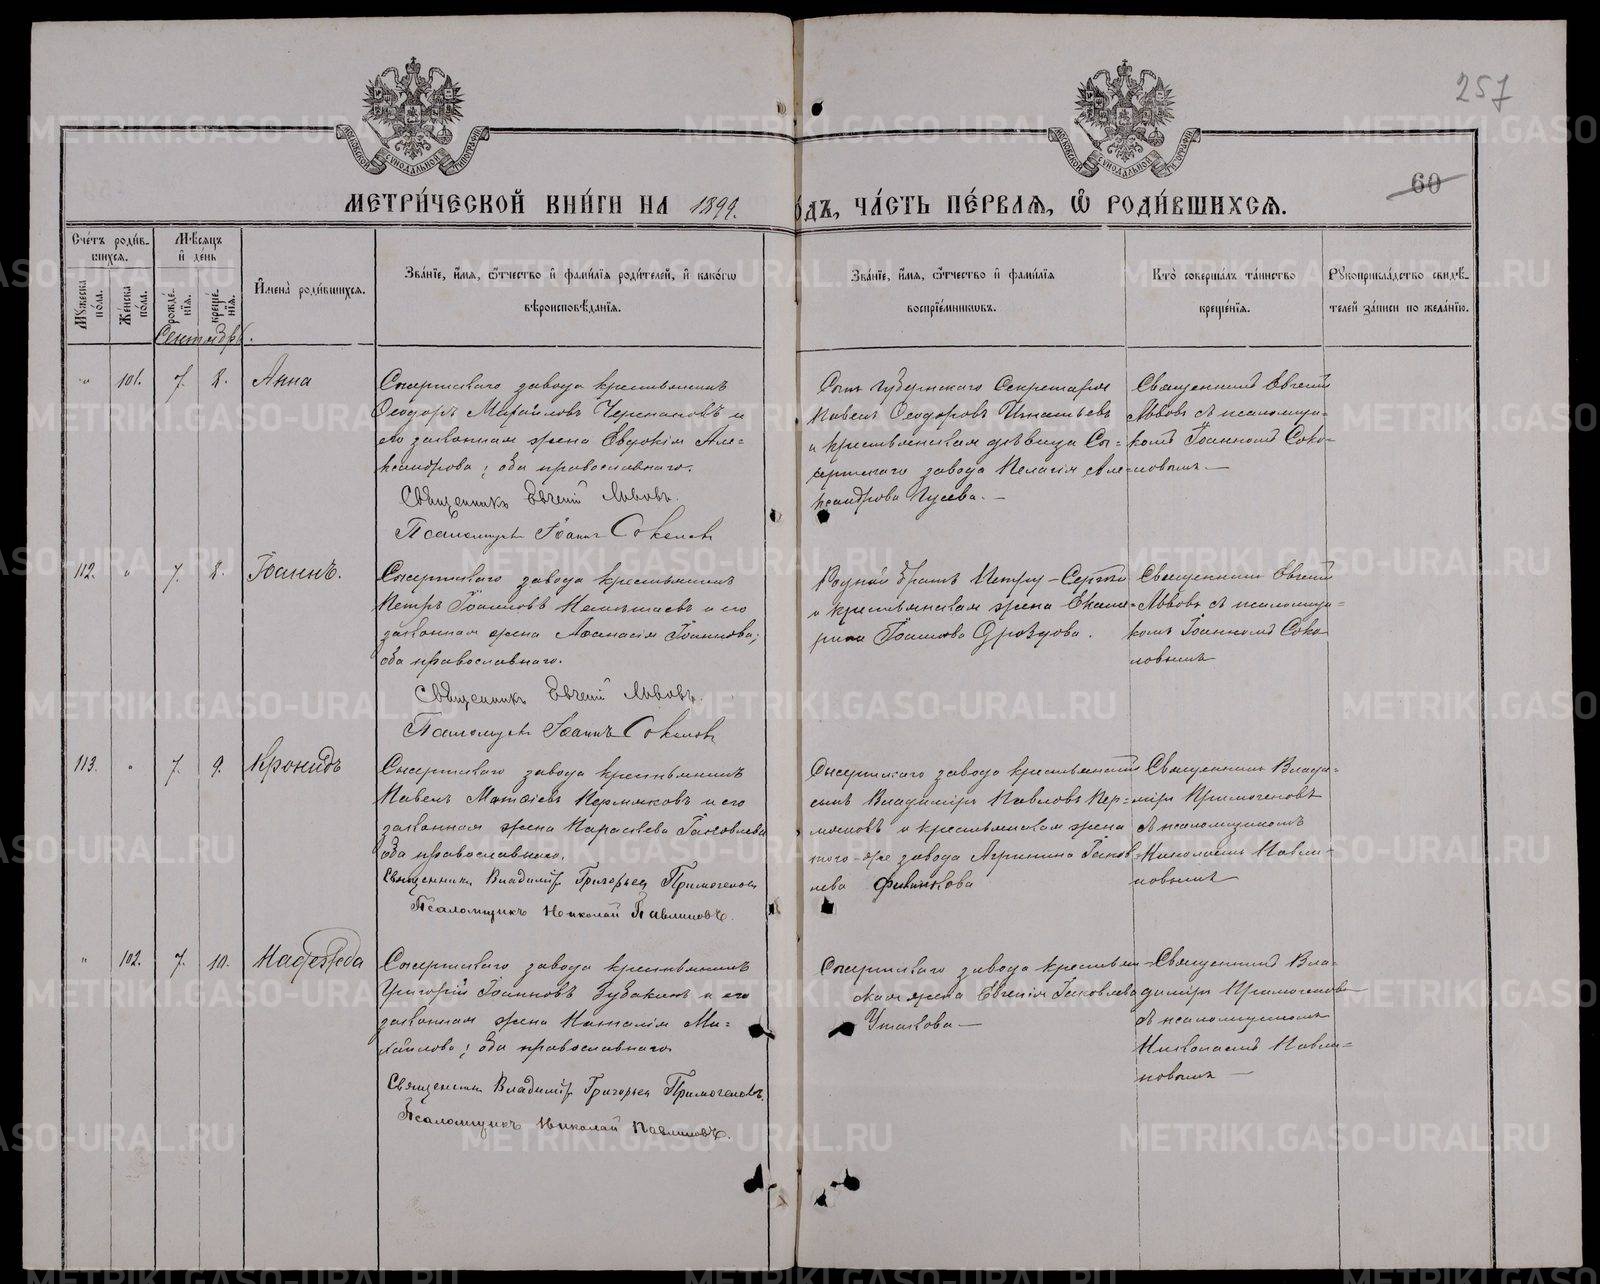 257
60
МЕТРИ́ЧЕСКОЙ КНИ́ГИ НА 1899. ГОДЪ, ЧА́СТЬ ПЕ́РВАЯ, Ѽ РОДИ́ВШИХСЯ.
Сче́тъ роди́в-
шихся.
Мꙋ́жеска по́ла.
Же́нска по́ла.
Мѣ́сяцъ и҆ де́нь
рожде́-нїя.
креще́-нїя.
И҆мена̀ роди́вшихся.
Зва́нїе, и҆́мя, ѻ҆́тчество и҆ фами́лїя роди́телей, и҆ како́гѡ
вѣроисповѣ́данїя.
Зва́нїе, и҆́мя, ѻ҆́тчество и҆ фами́лїя
воспрїе́мникѡвъ.
Кто̀ соверша́лъ та́инство
креще́нїя.
Рꙋкоприкла́дство свидѣ́-
телей за́писи по жела́нїю.
Сентябрь.
„ 101. 7. 8. Анна
Сысертскаго завода крестьянинъ
Ѳеодоръ Михайловъ Черепановъ и
его законная жена Евдокія Але-
ксандрова; оба православнаго.
Священникъ Евгеній Львовъ.
Псаломщикъ Іоаннъ Соколовъ
Сынъ Губернскаго Секретаря
Павелъ Ѳеодоровъ Игнатьевъ
и крестьянская дѣвица Сы-
сертскаго завода Пелагія Але-
ксандрова Гусева. —
Священникъ Евгеній
Львовъ съ псаломщи-
комъ Іоанномъ Соко-
ловымъ —
112. „ 7. 8. Іоаннъ.
Сысертскаго завода крестьянинъ
Петръ Іоанновъ и его
законная жена Аѳанасія Іоаннова;
оба православнаго.
Священникъ Евгеній Львовъ.
Псаломщикъ Іоаннъ Соколовъ
Родной братъ Петру — Сергій
и крестьянская жена Екате-
рина Іоаннова Дроздова.
Священникъ Евгеній
Львовъ съ псаломщи-
комъ Іоанномъ Соко-
ловымъ
113. „ 7. 9. Кронидъ
Сысертскаго завода крестьянинъ
Павелъ Матѳіевъ Пермяковъ и его
законная жена Параскева Іаковлева
оба православнаго.
Священникъ Владиміръ Григорьевъ Примогеновъ
Псаломщикъ Николай Павлиновъ.
Сысертскаго завода крестьянскій
сынъ Владиміръ Павловъ Пер-
мяковъ и крестьянская жена
того-же завода Агрипина Іаков-
лева
Священникъ Влади-
міръ Примогеновъ
съ псаломщикомъ
Николаемъ Павли-
новымъ
„ 102. 7. 10. Надежда
Сысертскаго завода крестьянинъ
Григорій Іоанновъ Зубакинъ и его
законная жена Наталія Ми-
хаилова; оба православнаго
Священникъ Владиміръ Григорьевъ Примогеновъ.
Псаломщикъ Николай Павлиновъ.
Сысертскаго завода крестьян-
ская жена Евгенія Іаковлева
Ушакова —
Священникъ Вла-
диміръ Примогеновъ
съ псаломщикомъ
Николаемъ Павли-
новымъ —